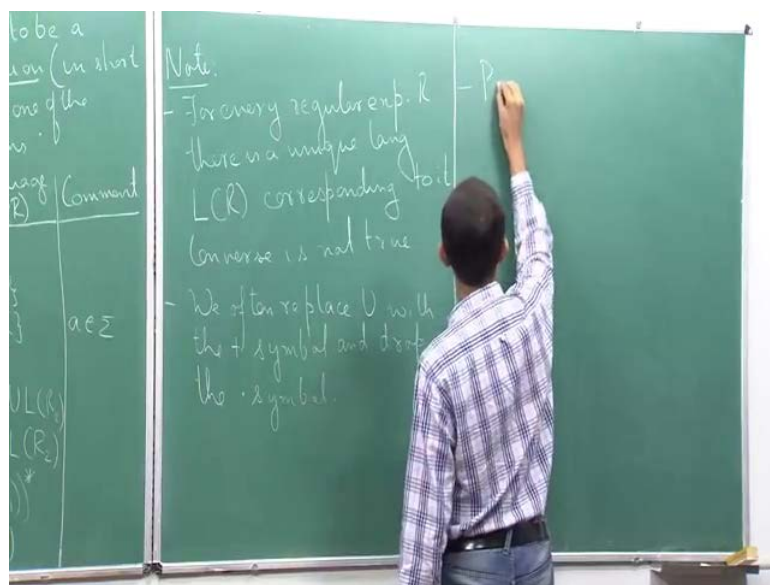 to be a
(in short
one of the
(R)
Comment
a ∈ Σ
∪ L(R₂)
L(R₂)
)*
Note.
- For every regular exp. R
there is a unique lang
L(R) corresponding to it
Converse is not true
- We often replace ∪ with
the + symbol and drop
the · symbol.
- P